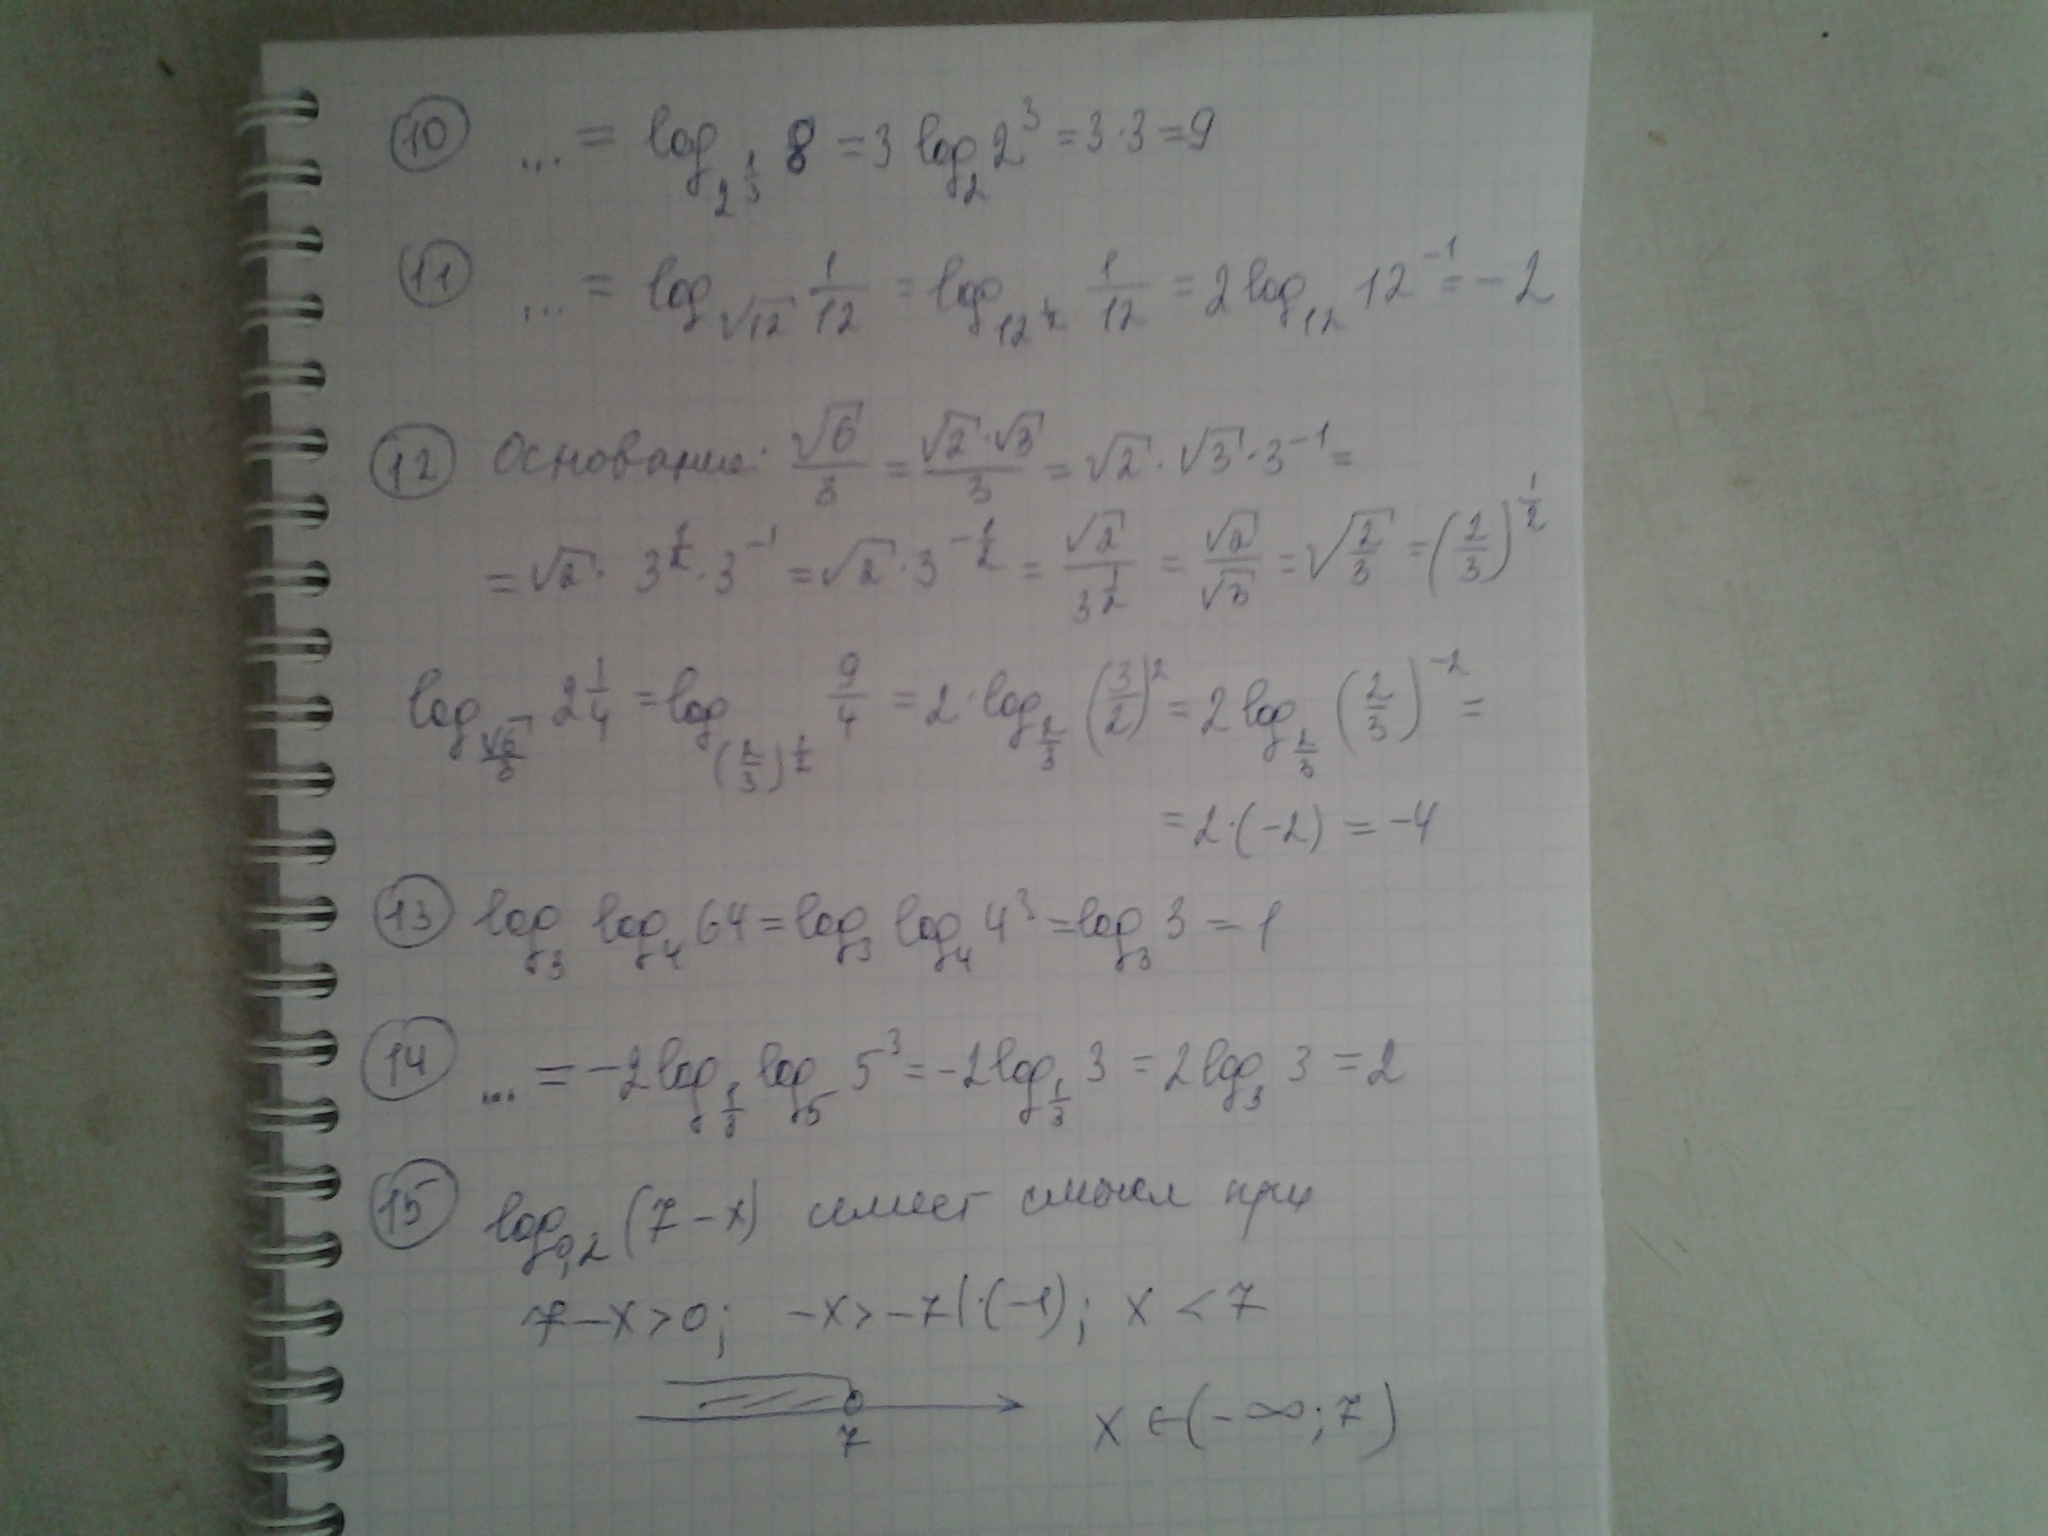 10 ... = log_{2^{1/3}} 8 = 3 log_2 2^3 = 3·3 = 9
11 ... = log_{√12} 1/12 = log_{12^{1/2}} 1/12 = 2 log_{12} 12^{-1} = -2
12 Основание: √6/3 = √2·√3/3 = √2·√3·3^{-1} =
= √2·3^{1/2}·3^{-1} = √2·3^{-1/2} = √2/3^{1/2} = √2/√3 = √(2/3) = (2/3)^{1/2}
log_{√6/3} 2 1/4 = log_{(2/3)^{1/2}} 9/4 = 2·log_{2/3} (3/2)^2 = 2 log_{2/3} (2/3)^{-2} =
= 2·(-2) = -4
13 log_3 log_4 64 = log_3 log_4 4^3 = log_3 3 = 1
14 ... = -2 log_{1/3} log_5 5^3 = -2 log_{1/3} 3 = 2 log_3 3 = 2
15 log_{0,2} (7-x) имеет смысл при
7-x>0; -x>-7 |·(-1); x < 7
7 x ∈ (-∞; 7)